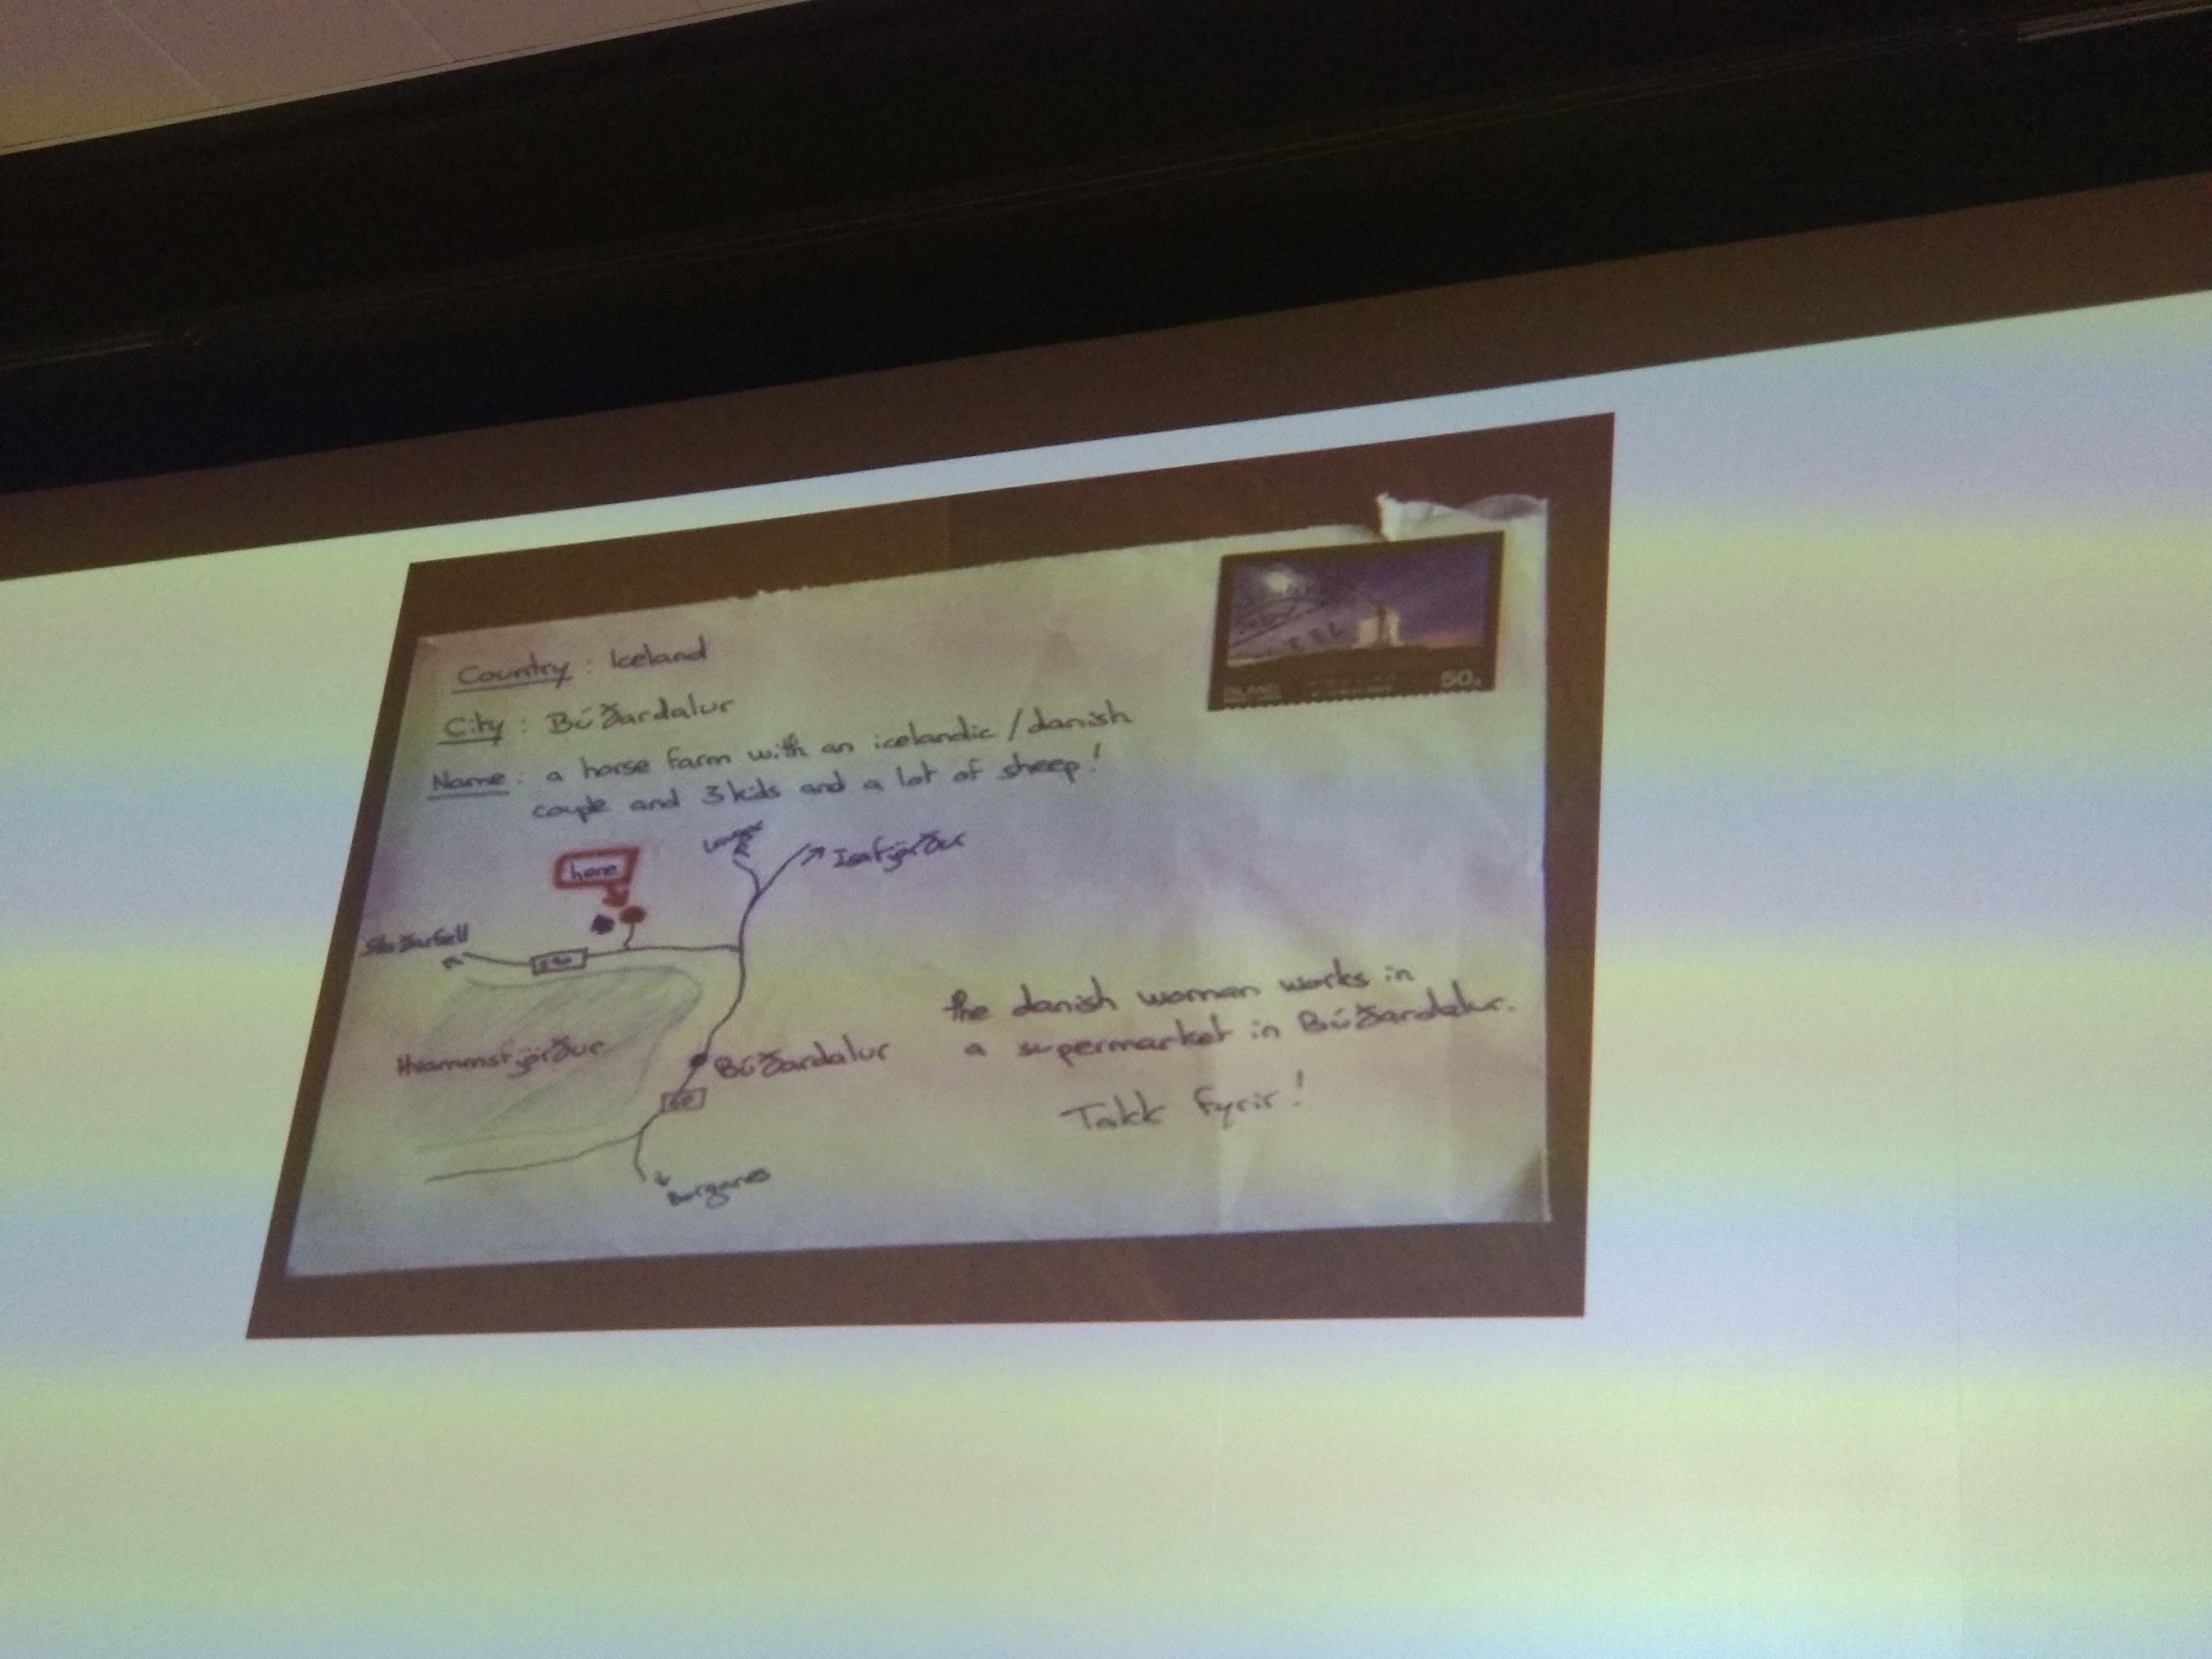 Country : Iceland
City : Búðardalur
Name : a horse farm with an icelandic / danish
couple and 3 kids and a lot of sheep!
here
Isafjörður
Hvammsfjörður
Búðardalur
60
Borganes
the danish woman works in
a supermarket in Búðardalur.
Takk fyrir!
ISLAND
50